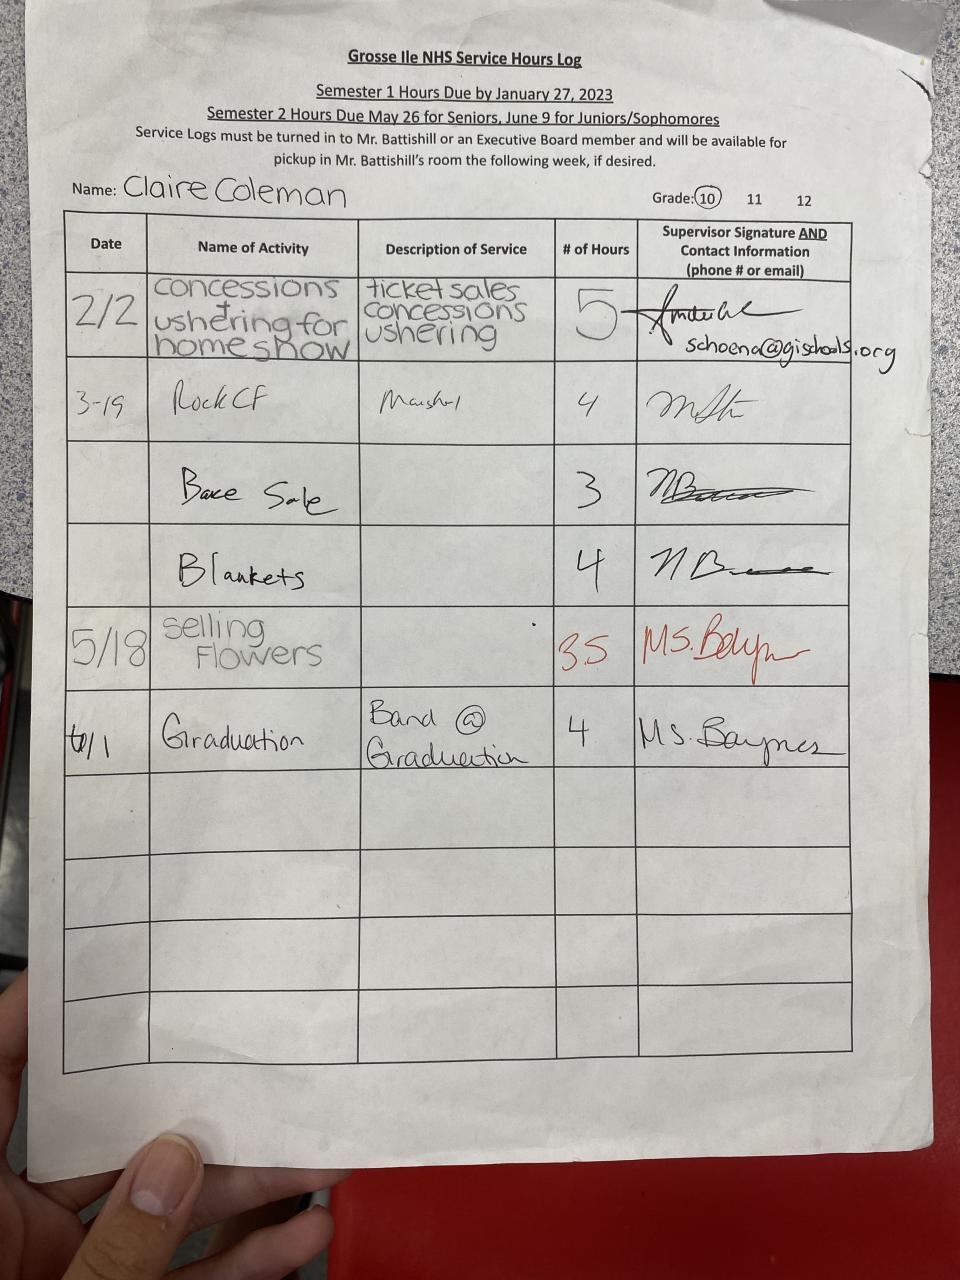 Grosse Ile NHS Service Hours Log
Semester 1 Hours Due by January 27, 2023
Semester 2 Hours Due May 26 for Seniors, June 9 for Juniors/Sophomores
Service Logs must be turned in to Mr. Battishill or an Executive Board member and will be available for
pickup in Mr. Battishill's room the following week, if desired.
Name: Claire Coleman
Grade: 10 11 12
Date
Name of Activity
Description of Service
# of Hours
Supervisor Signature AND
Contact Information
(phone # or email)
2/2
concessions
+
ushering for
home show
ticket sales
concessions
ushering
5
schoena@gischools.org
3-19
Rock CF
4
Bake Sale
3
Blankets
4
5/18
selling
Flowers
3.5
Ms.
Graduation
Band @
Graduation
4
Ms. Baynes